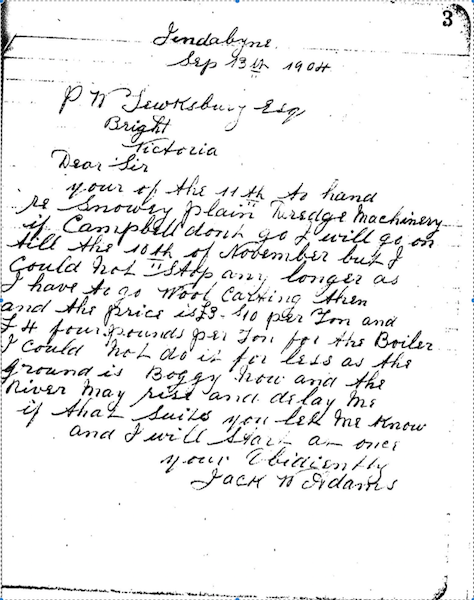 3
Jindabyne
Sep 13th 1904
P W Tewksbury Esq
Bright
Victoria
Dear Sir
your of the 11th to hand
re Snowey plain Dredge Machinery
if Campbell dont go I will go on
till the 10th of November but I
Could not Stop any longer as
I have to go wool Carting then
and the price is £3-10 per Ton and
£4 four pounds per Ton for the Boiler
I Could not do it for less as the
ground is Boggy now and the
River May rise and delay Me
if that Suits you let Me Know
and I will Start at once
your Obidiently
Jack W Adams